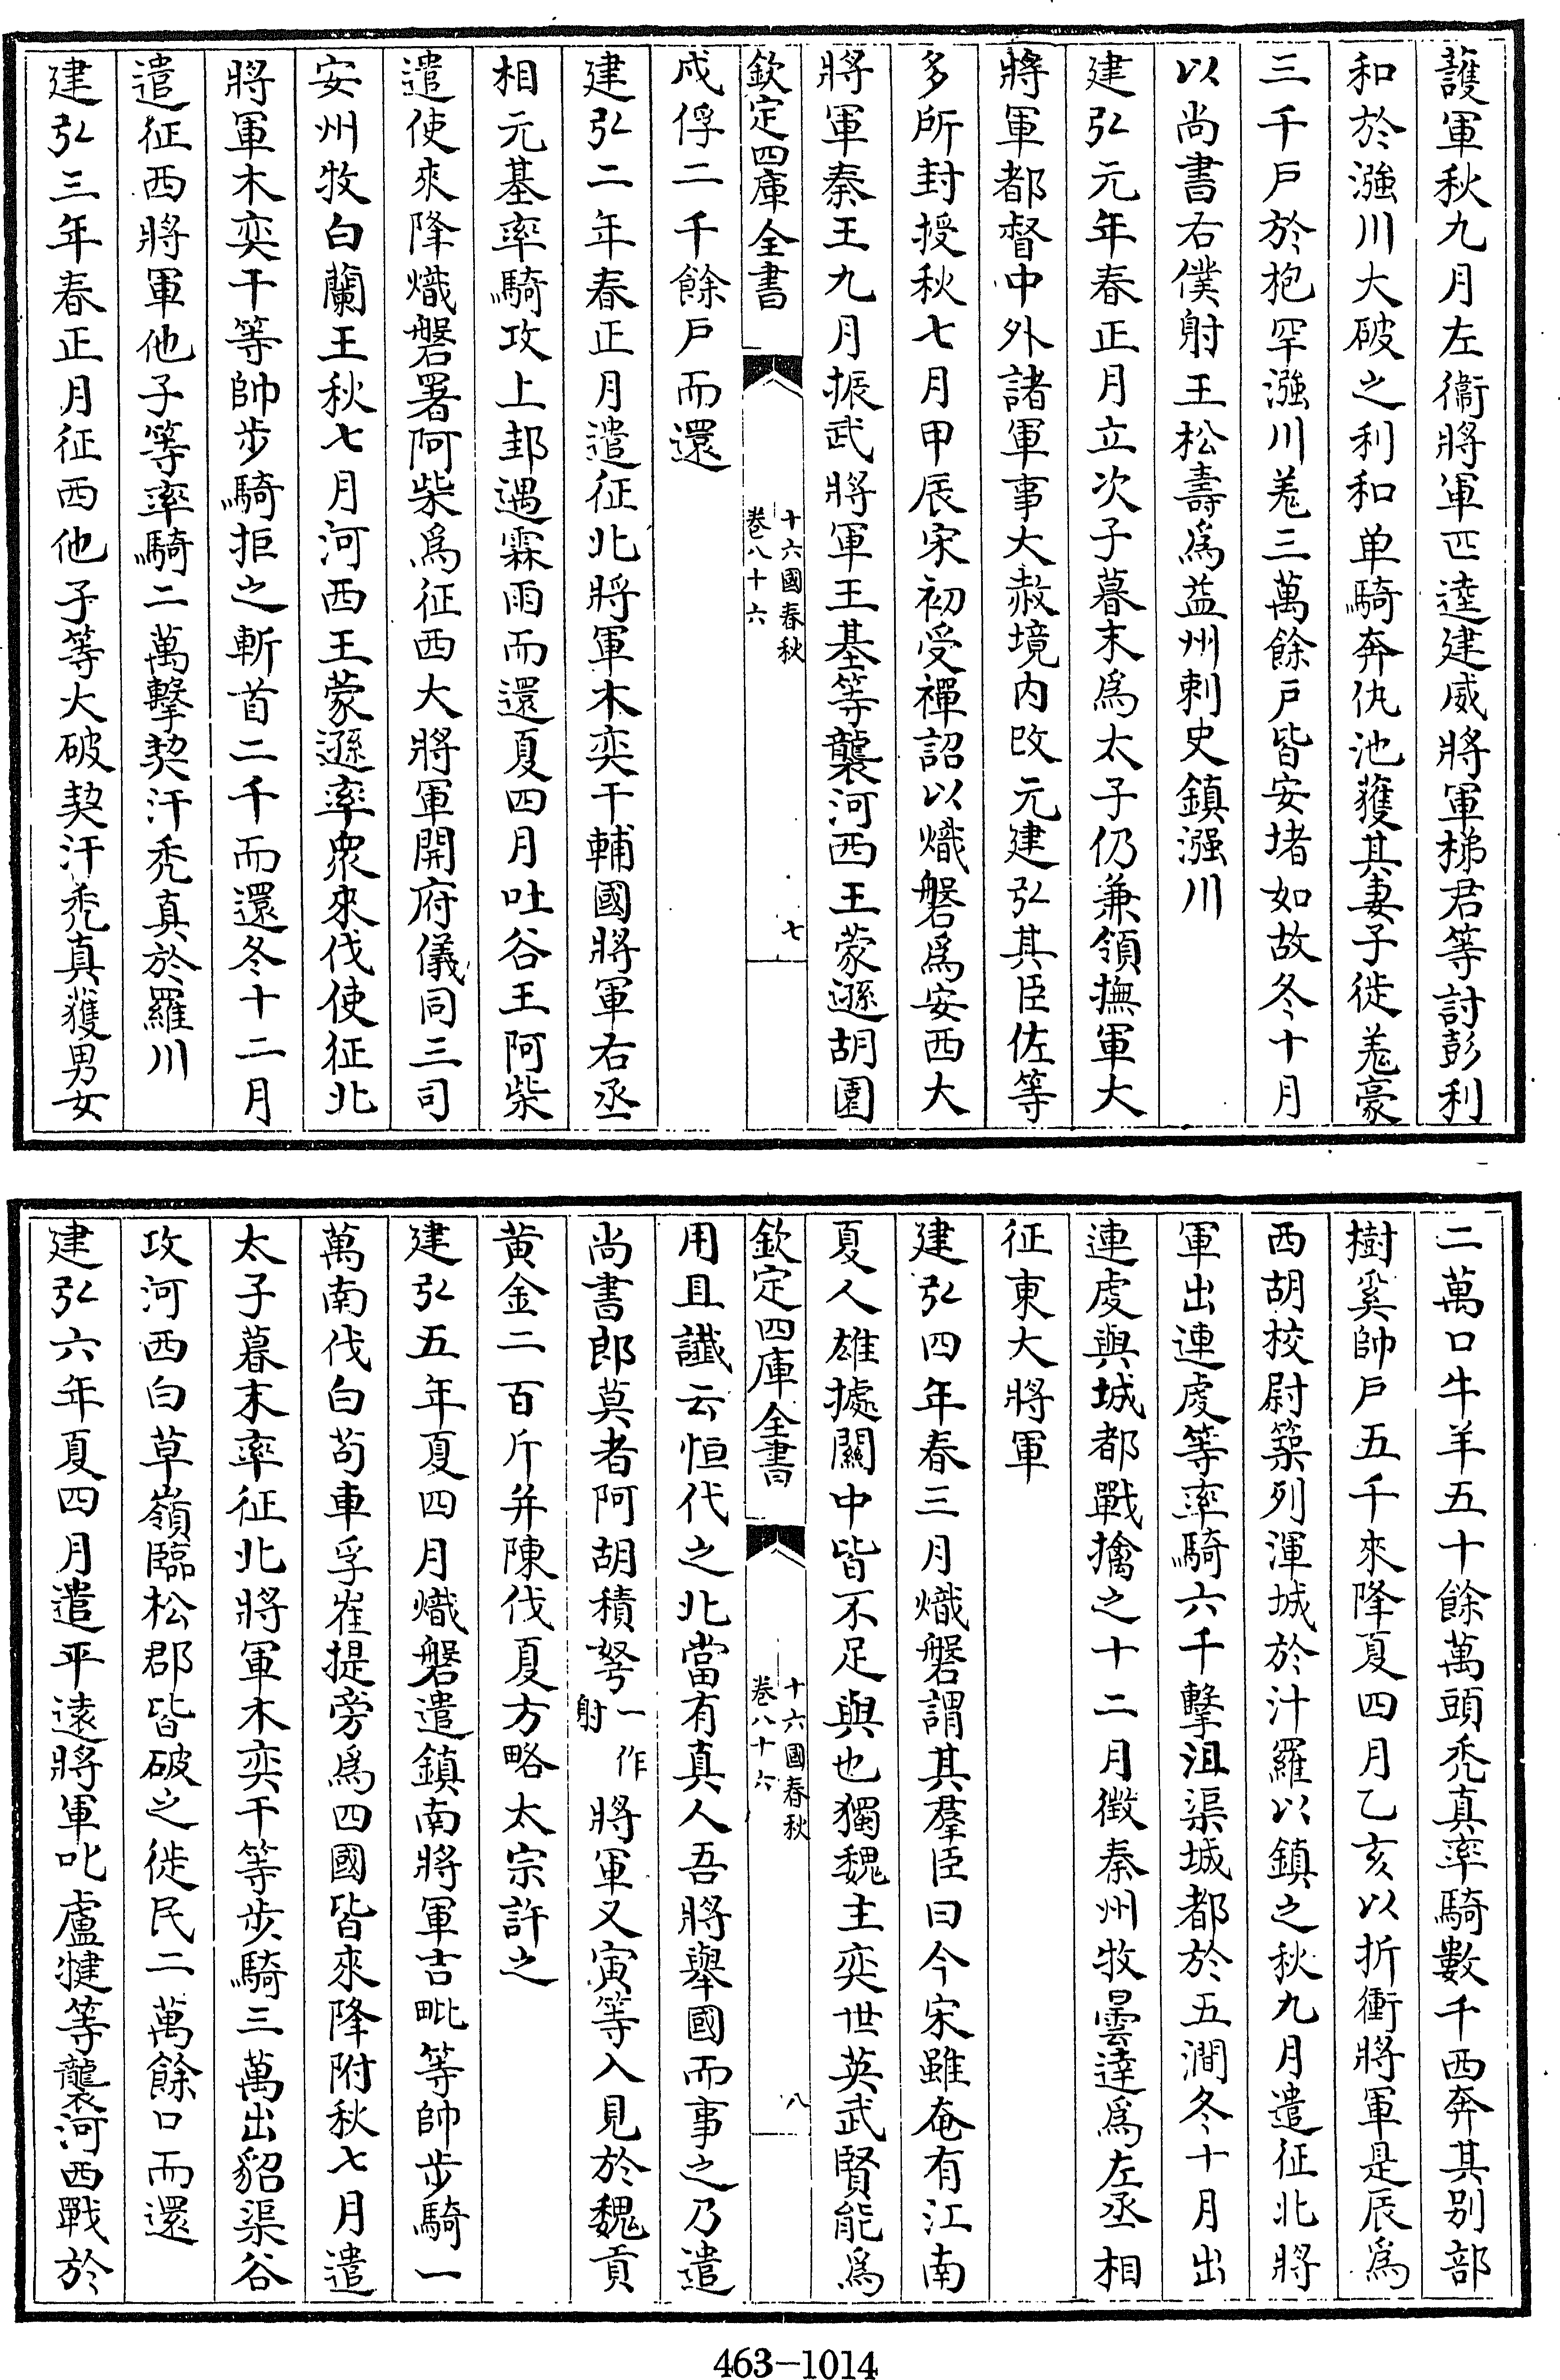 護軍秋九月左衞將軍匹逵建威將軍梯君等討彭利
和於漒川大破之利和单騎奔仇池獲其妻子徙羗豪
三千戸於抱罕漒川羗三萬餘户皆安堵如故冬十月
以尚書右僕射王松壽爲益州刺史鎮漒川
建弘元年春正月立次子暮末爲太子仍兼領撫軍大
將軍都督中外諸軍事大赦境内改元建弘其臣佐等
多所封授秋七月甲辰宋初受禪詔以熾磐爲安西大
將軍秦王九月振武將軍王基等襲河西王蒙遜胡園
欽定四庫全書
十六國春秋
卷八十六
七
戍俘二千餘户而還
建弘二年春正月遣征北將軍木奕干輔國將軍右丞
相元基率騎攻上邽遇霖雨而還夏四月吐谷王阿柴
遣使來降熾磐署阿柴爲征西大將軍開府儀同三司
安州牧白蘭王秋七月河西王蒙遜率衆來伐使征北
將軍木奕干等帥步騎拒之斬首二千而還冬十二月
遣征西將軍他子等率騎二萬擊契汗禿真於羅川
建弘三年春正月征西他子等大破契汗禿真獲男女
二萬口牛羊五十餘萬頭禿真率騎數千西奔其别部
樹奚帥户五千來降夏四月乙亥以折衝將軍是辰爲
西胡校尉築列渾城於汁羅以鎮之秋九月遣征北將
軍出連虔等率騎六千擊沮渠城都於五澗冬十月出
連虔與城都戰擒之十二月徵秦州牧曇達爲左丞相
征東大將軍
建弘四年春三月熾磐謂其羣臣曰今宋雖奄有江南
夏人雄據關中皆不足與也獨魏主奕世英武賢能爲
欽定四庫全書
十六國春秋
卷八十六
八
用且讖云恒代之北當有真人吾將舉國而事之乃遣
尚書郎莫者阿胡積弩一作射將軍又寅等入見於魏貢
黄金二百斤并陳伐夏方略太宗許之
建弘五年夏四月熾磐遣鎮南將軍吉毗等帥步騎一
萬南伐白苟車孚崔提旁爲四國皆來降附秋七月遣
太子暮末率征北將軍木奕干等步騎三萬出貂渠谷
攻河西白草嶺臨松郡皆破之徙民二萬餘口而還
建弘六年夏四月遣平遠將軍叱盧犍等襲河西戰於
463-1014